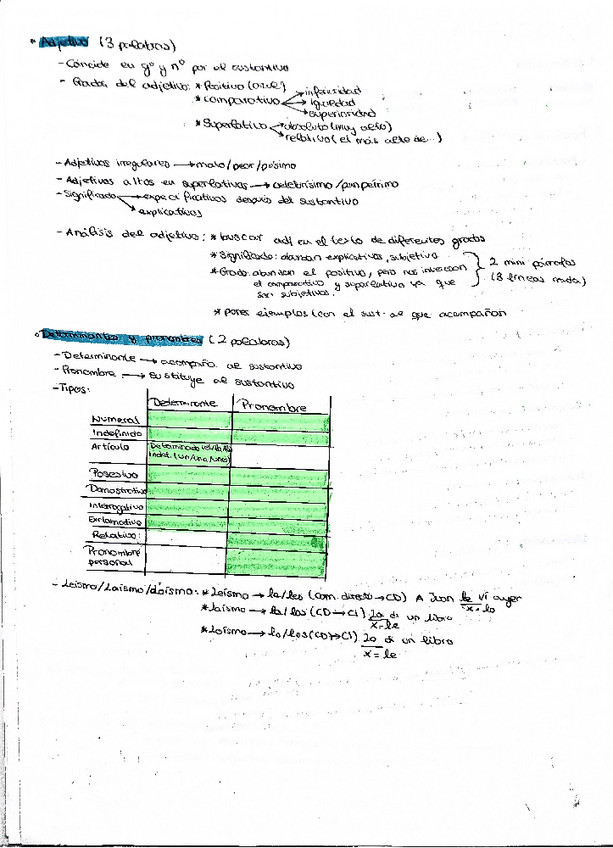 * Adjetivo (3 palabras)
- Coincide en gº y nº por el sustantivo
- Grados del adjetivo: * Positivo (azul)
* comparativo → inferioridad
→ igualdad
→ superioridad
* Superlativo → absoluto (muy alto)
→ relativo (el más alto de...)
- Adjetivos irregulares → malo/peor/pésimo
- Adjetivos altos en superlativos → celebrísimo/paupérrimo
- Significado → especificativos después del sustantivo
→ explicativos
- Análisis del adjetivo: * buscar adj en el texto de diferentes grados
* Significado: abundan explicativos, subjetivo
* Grado: abundan el positivo, pero nos interesan
el comparativo y superlativo ya que
son subjetivos.
2 mini párrafos
(3 líneas cada)
* pones ejemplos (con el sust. al que acompañan)
* Determinantes y pronombres (2 palabras)
- Determinante → acompaña al sustantivo
- Pronombre → sustituye al sustantivo
- Tipos:
Determinante Pronombre
Numeral
Indefinido
Artículo Determinado (el/la/
Indet. (un/una/unos)
Posesivo
Demostrativo
Interrogativo
Exclamativo
Relativo:
Pronombre
personal
- Leísmo/Laísmo/Loísmo: * Leísmo → le/les (com. directo → CD) A Juan le vi ayer
x = lo
* Laísmo → la/las (CD → CI) La di un libro
x = le
* Loísmo → lo/los (CD → CI) Lo di un libro
x = le